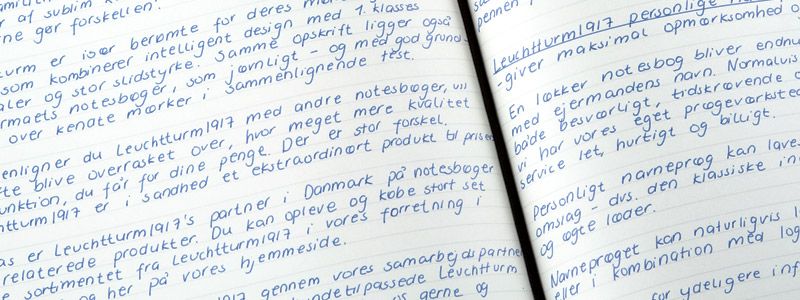 af sublim
ne gør forskellen.
urm er især berømte for deres
som kombinerer intelligent design med 1. klasses
aler og stor slidstyrke. Samme opskrift ligger også
rmaets notesbøger, som jævnligt - og med god grund
over kendte mærker i sammenlignende test.
enligner du Leuchtturm1917 med andre notesbøger, vil
te blive overrasket over, hvor meget mere kvalitet
unktion, du får for dine penge. Der er stor forskel.
htturm1917 er i sandhed et ekstraordinært produkt til prisen
as er Leuchtturm1917's partner i Danmark på notesbøger
relaterede produkter. Du kan opleve og købe stort set
sortimentet fra Leuchtturm1917 i vores forretning i
og her på vores hjemmeside.
1917 gennem vores samarbejdspartne
ndetilpassede Leuchtturm
s gerne og
pennen i
Leuchtturm1917 personlige
- giver maksimal opmærksomhed o
En lækker notesbog bliver endnu
med ejermandens navn. Normalvis
både besværligt, tidskrævende o
vi har vores eget prægeværksted
service let, hurtigt og billigt.
Personligt navnepræg kan laves
omslag - dvs. den klassiske in
og ægte læder.
Navnepræget kan naturligvis l
eller i kombination med log
for yderligere inf